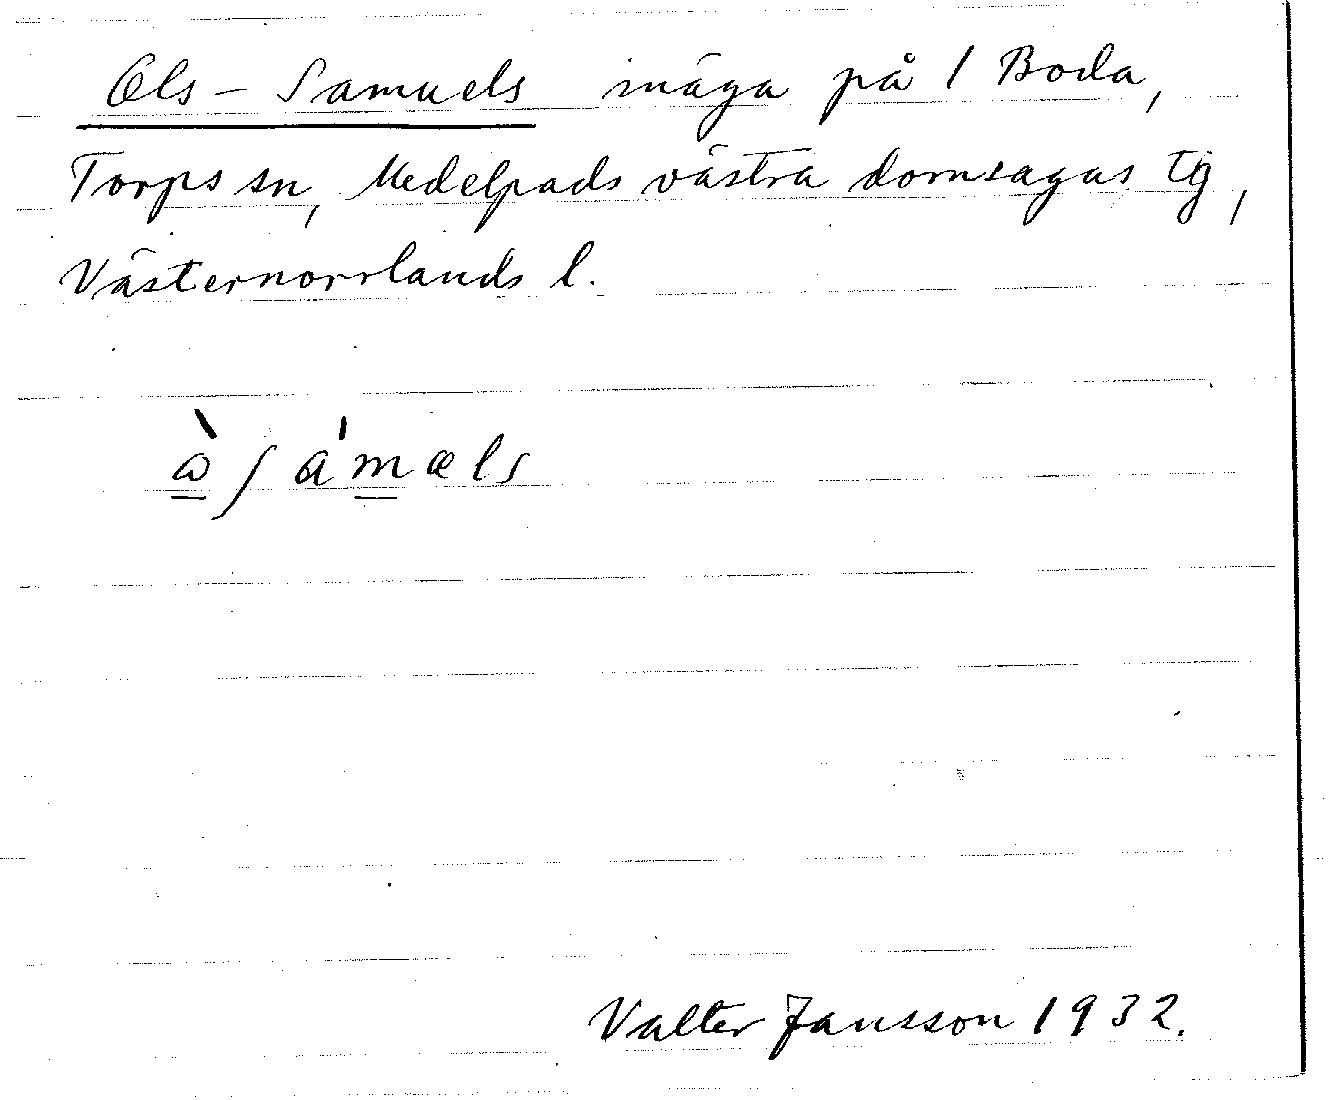 Ols-Samuels mäga på 1 Boda,
Torps sn, Medelpads västra domsagas tg,
Västernorrlands l.
Valter Jansson 1932.